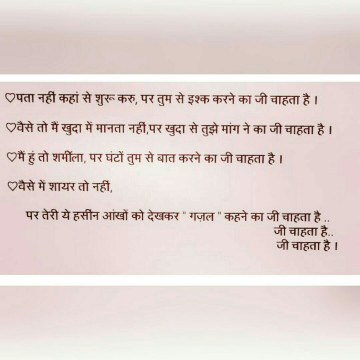 ♡पता नहीं कहां से शुरू करु, पर तुम से इश्क करने का जी चाहता है ।
♡वैसे तो मैं खुदा में मानता नहीं,पर खुदा से तुझे मांग ने का जी चाहता है ।
♡मैं हुं तो शर्मीला, पर घंटों तुम से बात करने का जी चाहता है ।
♡वैसे में शायर तो नहीं,
पर तेरी ये हसींन आंखों को देखकर " गज़ल " कहने का जी चाहता है ..
जी चाहता है..
जी चाहता है ।